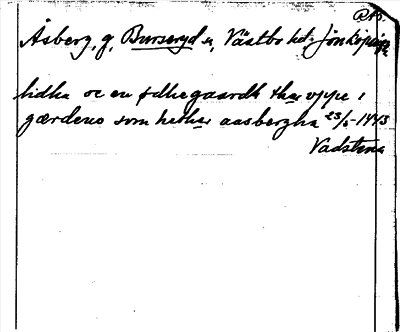 RAp.
Åsberg, g, Burseryd sn, Västbo hd. Jönköpings
lidha oc en ødhegaardh thær vppe i
gærdeno som hethær aasbergha 23/5-1443
Vadstena